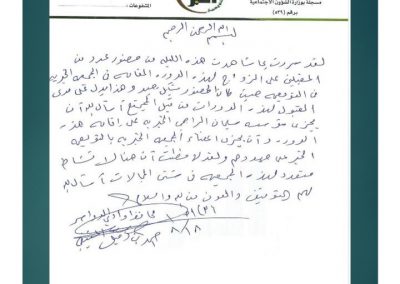 مسجلة بوزارة الشؤون الاجتماعية
برقم (٥٣٩)
المشفوعات :
بسم الله الرحمن الرحيم
لقد سررت بما شاهدت هذه الليلة من حضور عدد من
المقبلين على الزواج لهذه الدورة المقامة في الجمعية الخيرية
في النويعمة حيث كان الحضور بشكل جيد وهذا يدل على مدى
القبول لهذه الدورات من قبل المجتمع أسأل الله أن
يجزي مؤسسة سليمان الراجحي الخيرية على إقامة هذه
الدورة وأن يجزي أعضاء الجمعية الخيرية بالنويعمة
الخير على جهودهم ولقد لاحظت أن هنالك نشاط
متعدد لهذه الجمعية في شتى المجالات أسأل الله
لهم التوفيق والعون من الله والسلام
محافظ وادي الدواسر
٨/١٨
أحمد بن